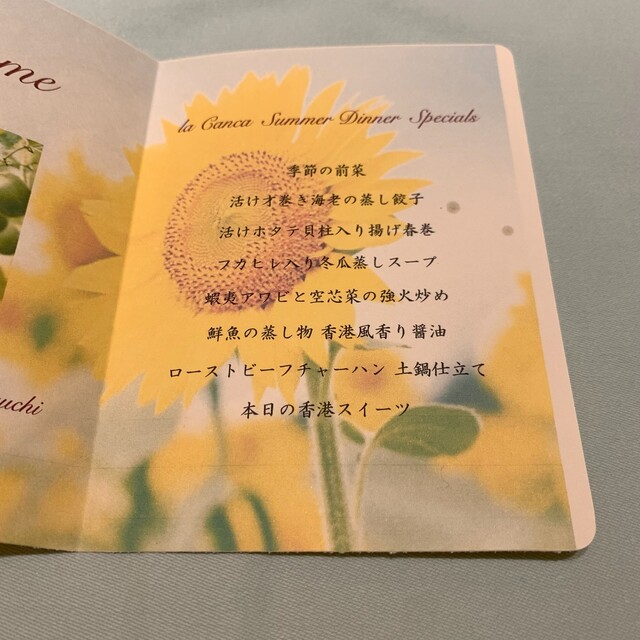 me
uchi
la Canca Summer Dinner Specials
季節の前菜
活け才巻き海老の蒸し餃子
活けホタテ貝柱入り揚げ春巻
フカヒレ入り冬瓜蒸しスープ
蝦夷アワビと空芯菜の強火炒め
鮮魚の蒸し物 香港風香り醤油
ローストビーフチャーハン 土鍋仕立て
本日の香港スイーツ